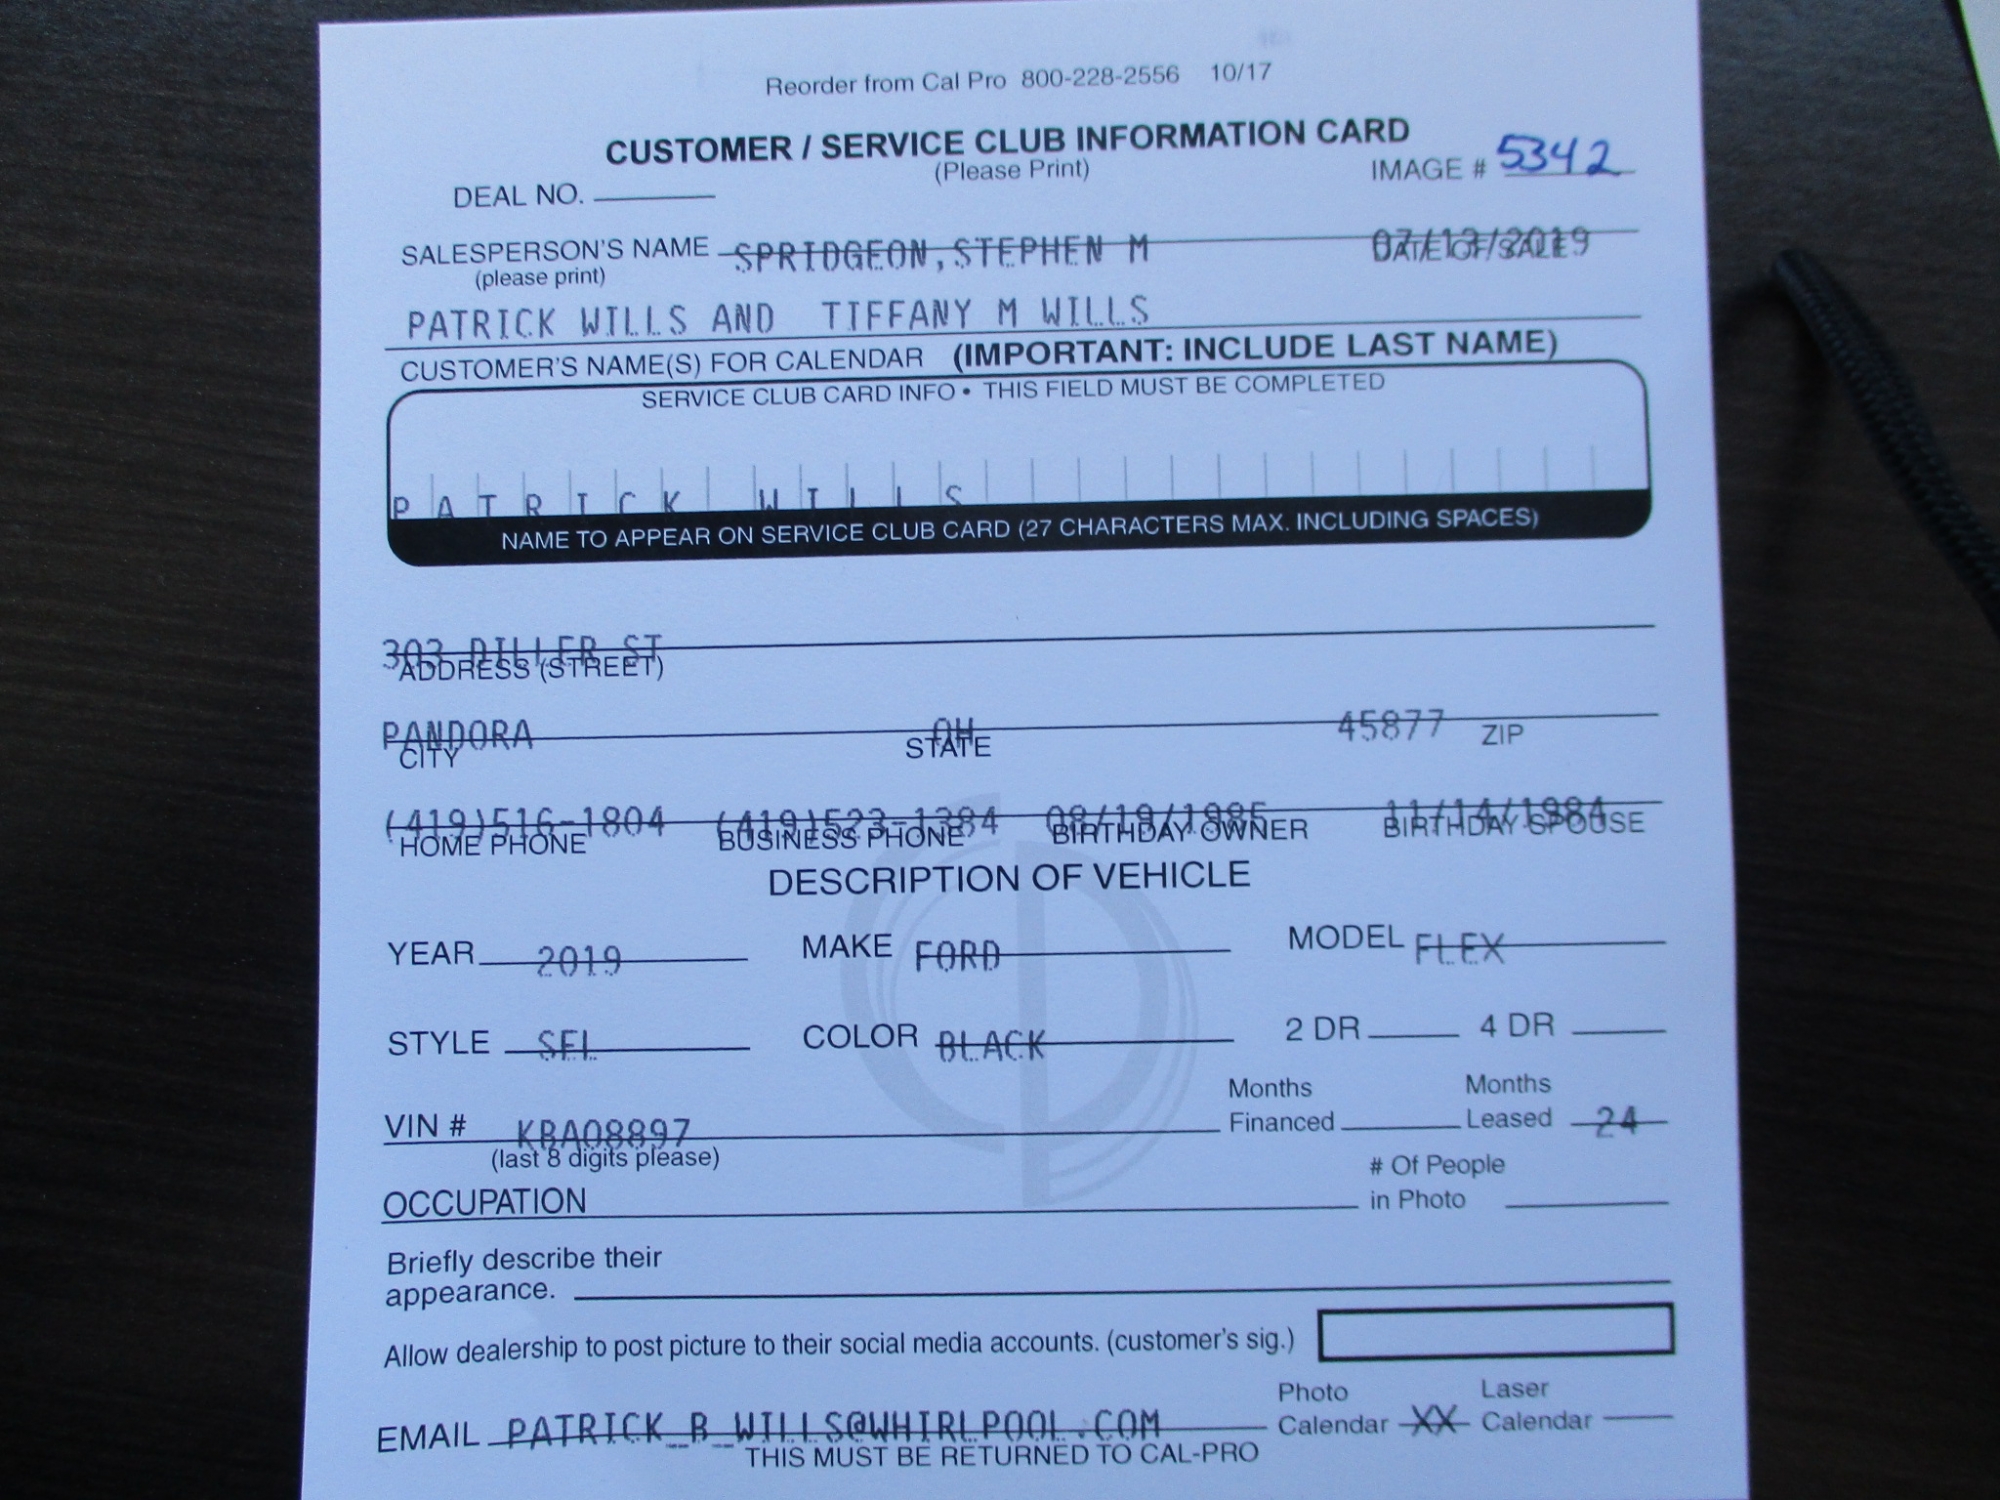 Reorder from Cal Pro 800-228-2556 10/17
CUSTOMER / SERVICE CLUB INFORMATION CARD
(Please Print)
IMAGE # 5342
DEAL NO.
SALESPERSON'S NAME SPRIDGEON, STEPHEN M
DATE OF SALE 07/13/2019
(please print)
PATRICK WILLS AND TIFFANY M WILLS
CUSTOMER'S NAME(S) FOR CALENDAR (IMPORTANT: INCLUDE LAST NAME)
SERVICE CLUB CARD INFO • THIS FIELD MUST BE COMPLETED
PATRICK WILLS
NAME TO APPEAR ON SERVICE CLUB CARD (27 CHARACTERS MAX. INCLUDING SPACES)
303 DILLER ST
ADDRESS (STREET)
PANDORA OH 45877 ZIP
CITY STATE
(419)516-1804 (419)523-1384 11/14/1984
HOME PHONE BUSINESS PHONE BIRTHDAY OWNER BIRTHDAY SPOUSE
DESCRIPTION OF VEHICLE
YEAR 2019 MAKE FORD MODEL FLEX
STYLE SEL COLOR BLACK 2 DR 4 DR
Months Months
VIN # KBA08897 Financed Leased 24
(last 8 digits please)
# Of People
OCCUPATION in Photo
Briefly describe their
appearance.
Allow dealership to post picture to their social media accounts. (customer's sig.)
Photo Laser
EMAIL PATRICK_B_WILLS@WHIRLPOOL.COM Calendar XX Calendar
THIS MUST BE RETURNED TO CAL-PRO